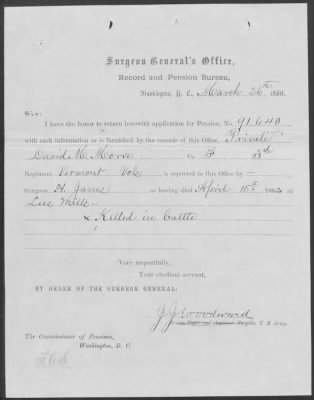 Surgeon General's Office,
Record and Pension Bureau,
Washington, D. C., March 26th 1880.
Sir:
I have the honor to return herewith application for Pension, No. 91640
with such information as is furnished by the records of this Office. Private
David M. Morse Co F 3d
Regiment Vermont Vols is reported to this Office by —
Surgeon H. Janes as having died April 16th 1862, at
Lees Mills
x Killed in battle
Very respectfully,
Your obedient servant,
BY ORDER OF THE SURGEON GENERAL:
J. J. Woodward
Surgeon, U. S. Army.
The Commissioner of Pensions,
Washington, D. C.